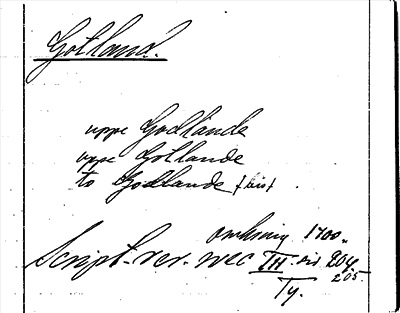 Gotland.
uppe Godlande
uppe Gotlande
to Godlande
omkring 1700.
Script. rer. svec III sid. 204,
205.
Ty.